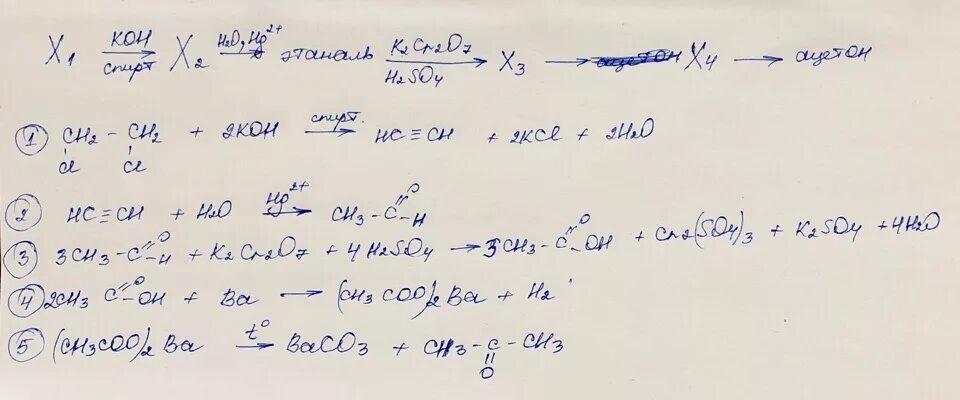 X1 KOH спирт → X2 H2O, Hg2+ → этаналь K2Cr2O7 H2SO4 → X3 → X4 → ацетон
① CH2 - CH2 + 2KOH спирт. → HC≡CH + 2KCl + 2H2O
Cl Cl
② HC≡CH + H2O Hg2+ → CH3 - C=O - H
③ 3CH3 - C=O - H + K2Cr2O7 + 4H2SO4 → 3CH3 - C=O - OH + Cr2(SO4)3 + K2SO4 + 4H2O
④ 2CH3 C=O - OH + Ba → (CH3COO)2Ba + H2
⑤ (CH3COO)2Ba t° → BaCO3 + CH3 - C - CH3
O